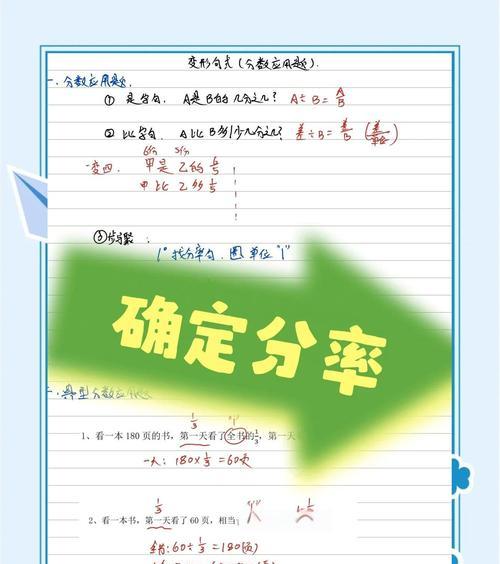 变形句式(分数应用题).
一、分数应用题.
① 是字句. A是B的几分之几? A÷B=A/B
② 比字句. A比B多/少几分之几? 差÷B=差/B (差/单位)
6份 5份
一变四. 甲是乙的6/5
甲比乙多1/5
③步骤:
1° 找分率句. 圈单位"1"
确定分率
典型分数应用题
1/3 "1"
1、看一本180页的书,第一天看了全书的1/3,第一天看了
一天:180×1/3=60页
1/3 "1" 1-1/3
2、看一本书,第一天看了60页,相当
全书:60÷1/3=180(页)